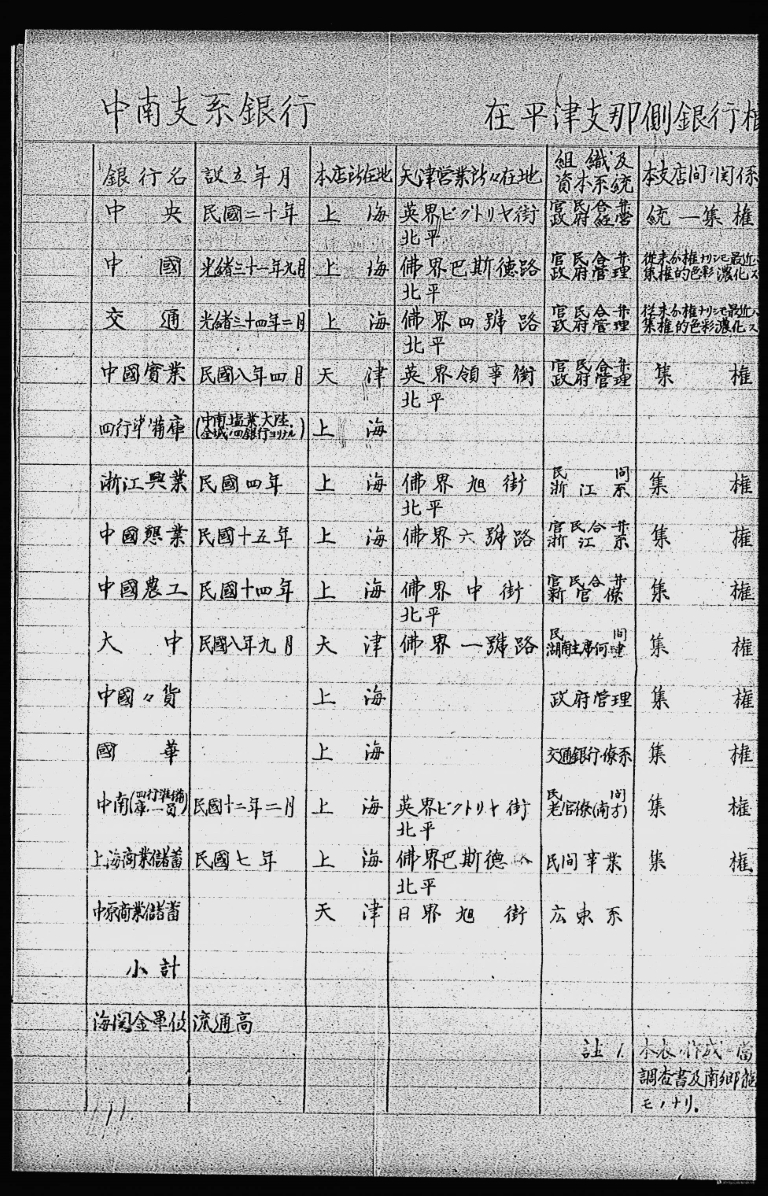 中南支系銀行
在平津支那側銀行
銀行名 設立年月 本店所在地 天津営業所々在地 組織及資本系統 本支店間ノ関係
中央 民國二十年 上海 英界ビクトリヤ街 官民合弁 統一集権
北平 政府経営
中國 光緒三十一年九月 上海 佛界巴斯德路 官民合弁 従来分権ナリシモ最近
北平 政府管理 集権的色彩濃化ス
交通 光緒三十四年二月 上海 佛界四號路 官民合弁 従来分権ナリシモ最近
北平 政府管理 集権的色彩濃化ス
中國實業 民國八年四月 天津 英界領事街 官民合弁 集権
北平 政府管理
四行準備庫 (中南、塩業、大陸、金城ノ四銀行ヨリナル) 上海
浙江興業 民國四年 上海 佛界旭街 民間 集権
北平 浙江系
中國懇業 民國十五年 上海 佛界六號路 官民合弁 浙江系 集権
中國農工 民國十四年 上海 佛界中街 官民合弁 新官僚 集権
北平
大中 民國八年九月 天津 佛界一號路 民間 湖南主席何鍵 集権
中國々貨 上海 政府管理 集権
國華 上海 交通銀行僚系 集権
中南(四行準備庫ノ一員) 民國十二年二月 上海 英界ビクトリヤ街 民間 老官僚(南方) 集権
北平
上海商業儲蓄 民國七年 上海 佛界巴斯德 民間事業 集権
北平
中原商業儲蓄 天津 日界旭街 広東系
小計
海関金單位流通高
註 1. 本表ノ作成ハ當
調査書及南郷龍
モノナリ。